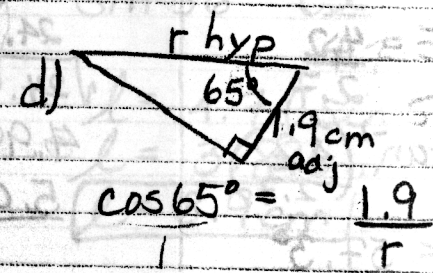 r hyp
d)
65°
1.9 cm
adj
cos65° = 1.9
1 r